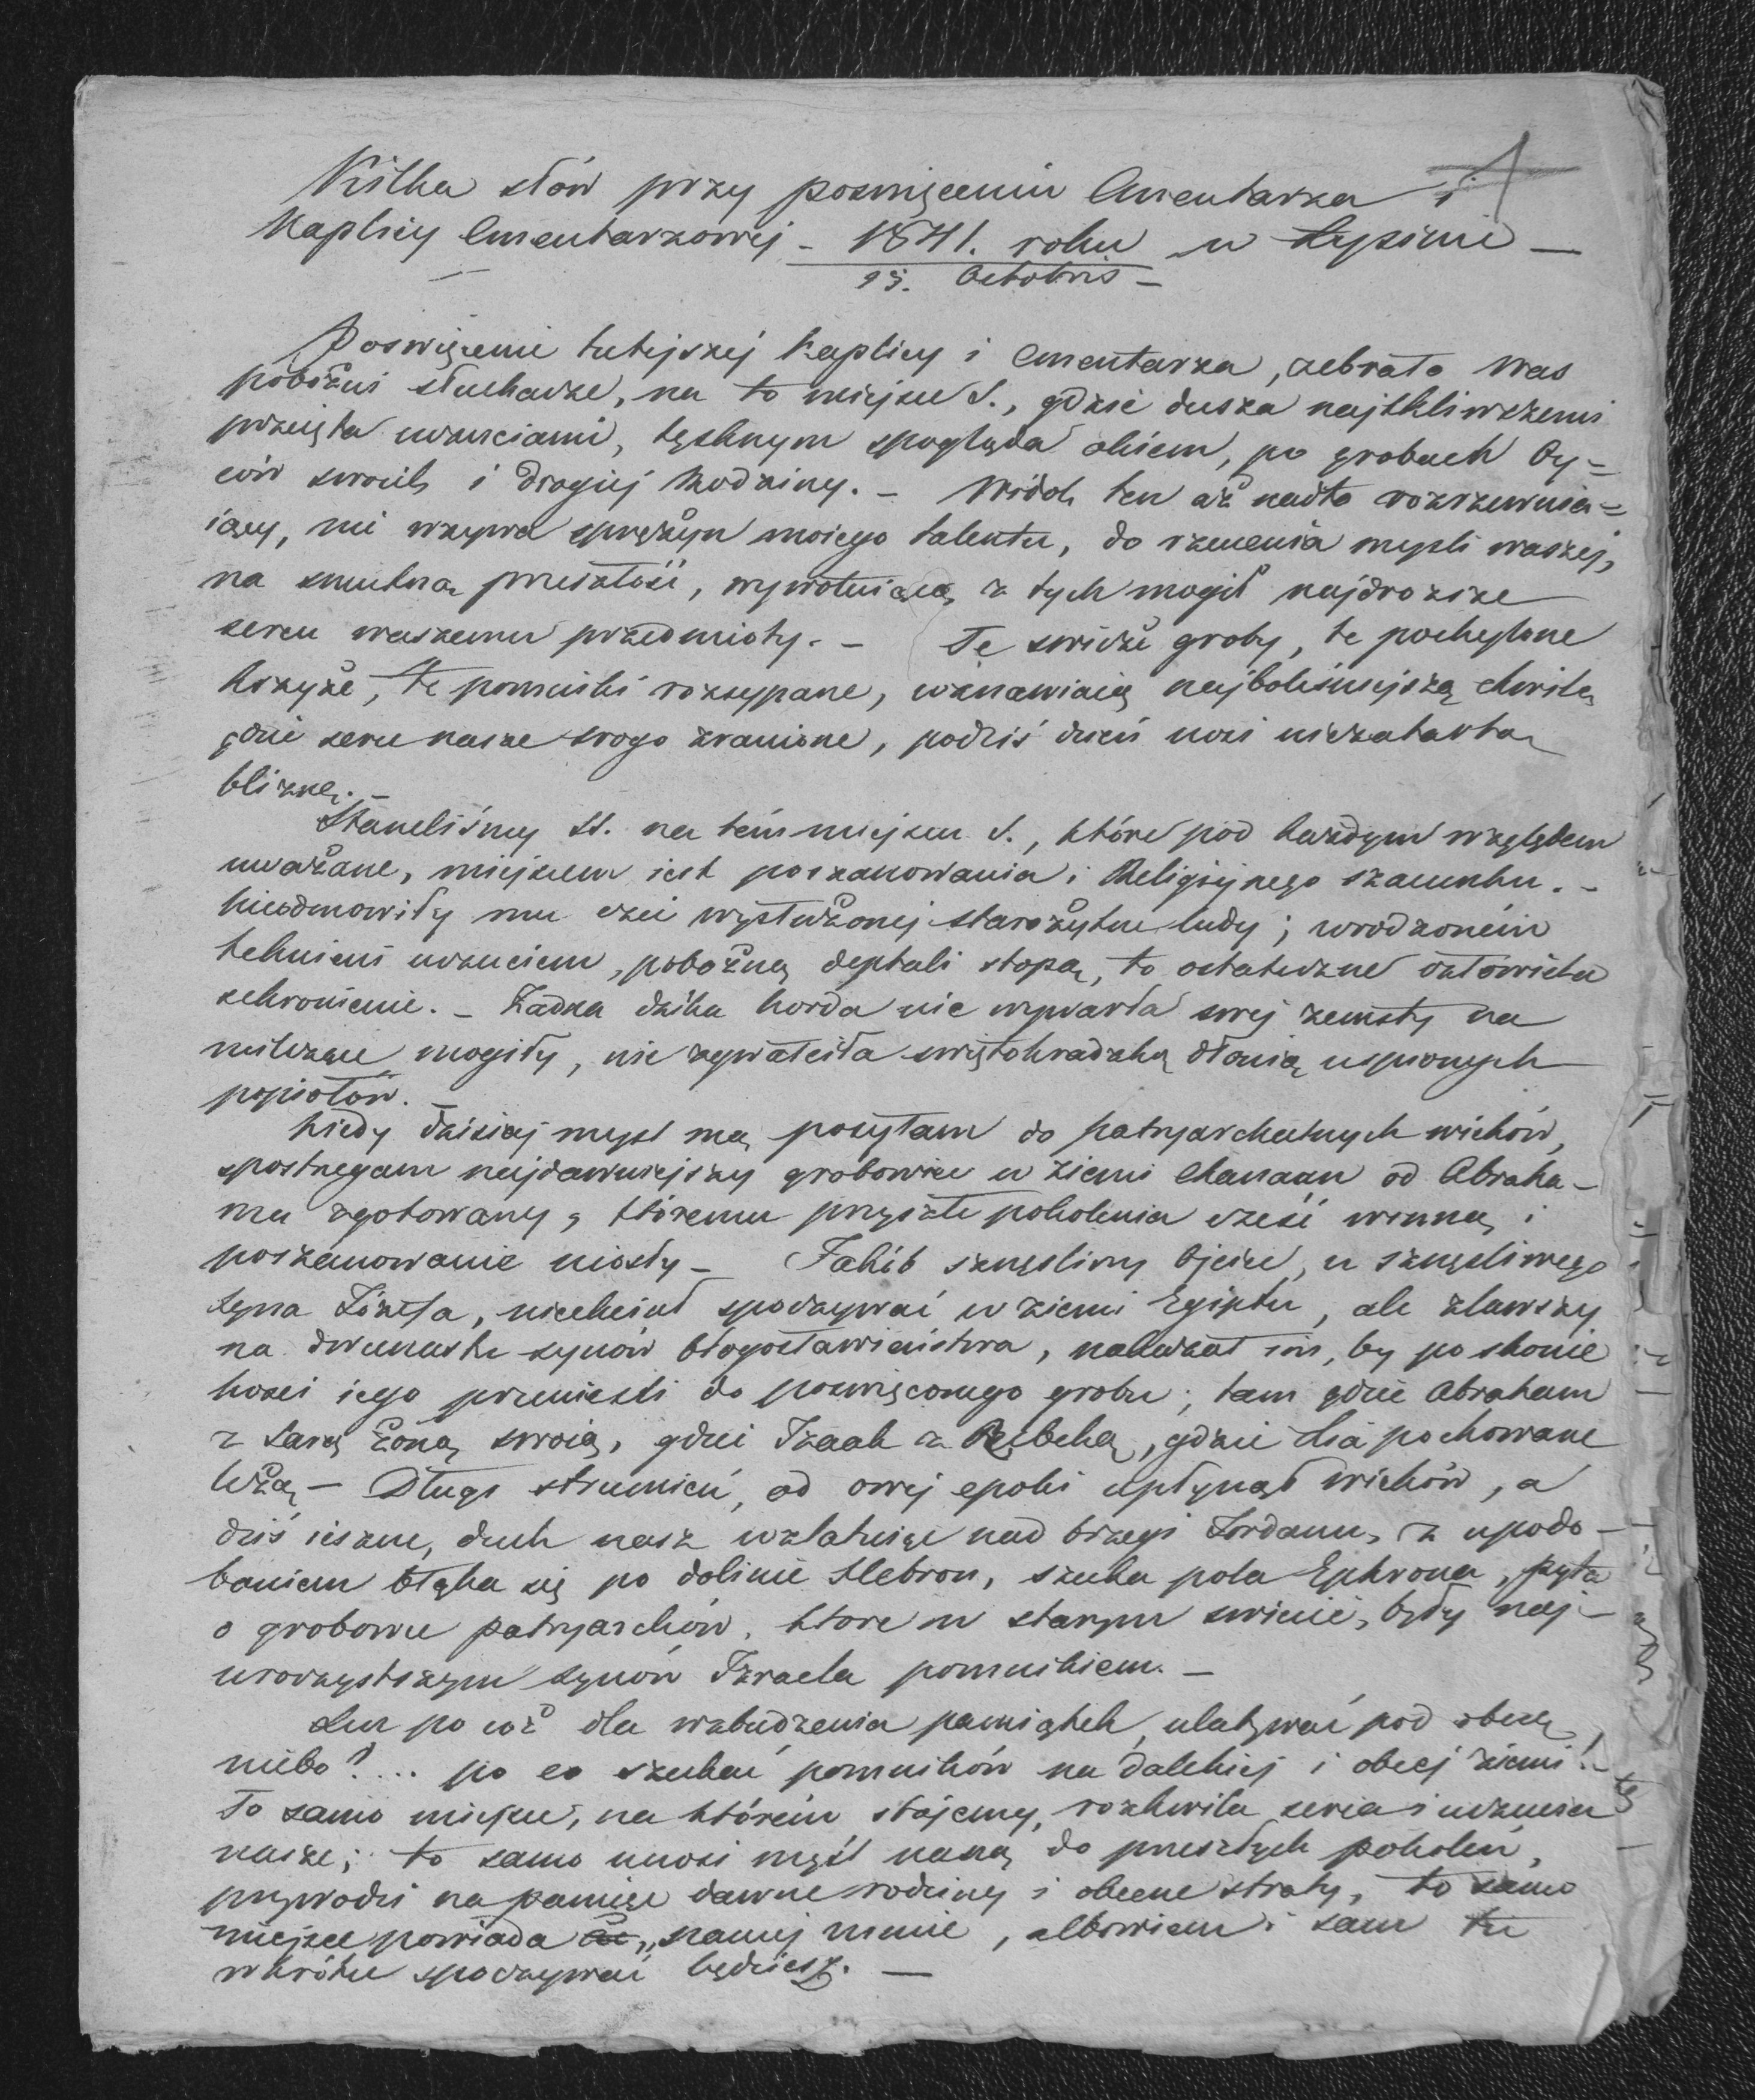 Kilka słów przy poswięceniu Cmentarza i
Kaplicy Cmentarzowej – 1841. roku w
Octobris –
Poswięcenie tutejszéj Kaplicy i Cmentarza, zebrało Was
pobożni słuchacze, na to miejsce S., gdzie dusza najtkliwszemi
przejęta uczuciami, tęsknym spogląda okiem, po grobach Oy=
ców swoich i drogiej Rodziny. – Widok ten aż nadto rozrzewnia=
iący, nie wzywa sprężyn moiego talentu, do rzucenia mysli waszéj,
na smutną przeszłość, z tych mogił najdrozsze
sercu waszemu przedmioty. – Te swieże groby, te pochylone
krzyże, te pomniki rozsypane, wznawiaią najboleśniejszą chwilę,
gdzie serce nasze srogo zranione, podziś dzień nosi niezatartą
bliznę. –
Stanęliśmy SS. na tém miejscu S., które pod każdym względem
uważane, miejscem iest poszanowania i Religijnego szacunku. –
Nieodmowiły mu czci wysłużonej starożytne ludy; wrodzoném
tchnieni uczuciem, pobożną deptali stopą, to ostateczne człowieka
schronienie. – Żadna dzika horda nie wywarła swej zemsty na
milczące mogiły, nie zgwałciła swiętokradzką dłonią uspionych
popiołów. –
Kiedy dzisiaj mysl mą posyłam do patryarchalnych wieków,
spostrzegam najdawniejszy grobowiec w ziemi Chanaan od Abraha–
ma zgotowany, któremu przyszłe pokolenia cześć winną i
poszanowanie niosły – Jakób szczęsliwy Ojciec, u szczęsliwego
Syna Józefa, niechciał spoczywać w ziemi Egiptu, ale zlawszy
na dwunastu synów błogosławieństwa, nakazał im, by po skonie
kosci iego przeniesli do poswięconego grobu; tam gdzie Abraham
z Sarą żoną swoią, gdzie Izaak z Rebeką, gdzie Lia pochowane
leżą – Długi strumień, od owej epoki upłynął wieków, a
dziś ieszcze, duch nasz wzlatuiąc nad brzegi Jordanu, z upodo–
baniem błąka się po dolinie Hebron, szuka pola Ephrona, pyta
o grobowce patryarchów, ktore w starym swiecie, były naj–
uroczystszym synów Izraela pomnikiem. –
Lecz po cóż dla wzbudzenia pamiątek, ulatywać pod obce
niebo? ... po co szukać pomników na dalekiej i obcej ziemi! –
To samo miejsce, na którém stojemy, rozkwila serca i uczucia
nasze; to samo unosi myśl naszą do przeszłych pokoleń,
przywodzi na pamięć dawne rodziny i obecne straty, to samo
miejsce powiada „szanuj mnie, albowiem i sam tu
wkrótce spoczywać będziesz. –